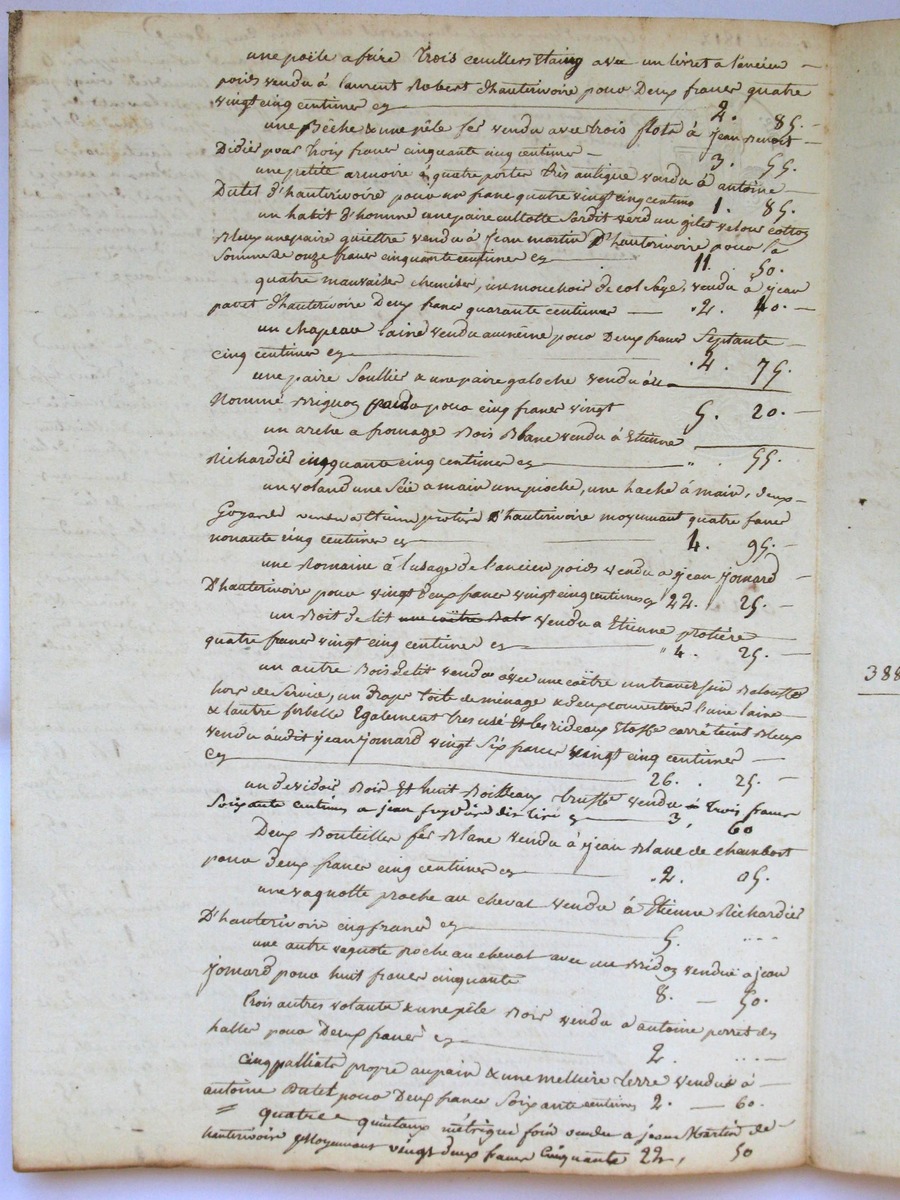 une poële a frire trois ceuillers Etaing avec un livret a l'ancien
poids vendu à laurent Robert d'hauterivoire pour Deux francs quatre
vingt cinq centimes cy 2. 85.
une Bêche & une pêle fer vendu avec trois flots à jean benoit
Didier pour trois francs cinquante cinq centimes 3. 55.
une petite armoire à quatre portes très antique vendu à antoine
Dutet d'hauterivoire pour un franc quatre vingt cinq centimes 1. 85.
un habit d'homme une paire cullotte Sardit verd un gilet velour cotton
Bleux une paire guiettre vendu à jean martin D'hauterivoire pour la
Somme de onze francs cinquante centimes cy 11. 50.
quatre mauvaises chemises, un mouchoir de col Soye, vendu à jean
d'hauterivoire Deux francs quarante centimes 2. 40.
un chapeau laine vendu au même pour Deux francs Septante
cinq centimes cy 2. 75.
une paire Soullier & une paire galoche vendu au
Nommé pour cinq francs vingt 5. 20.
un arche a fromage Bois Blanc vendu à Etienne
Richardier cinquante cinq centimes cy " . 55.
un voland une Scie a main une pioche, une hache à main, deux
Goyards vendu a Etienne protière D'hauterivoire moyennant quatre francs
nonante cinq centimes cy 4. 95.
une Romaine à l'usage de l'ancien poids vendu a jean jomard
D'hauterivoire pour vingt deux francs vingt cinq centimes cy 22. 25.
un Boit de lit vendu a Etienne protière
quatre francs vingt cinq centimes cy " 4. 25.
un autre Bois de lit vendu avec une coëtre un traversein Balouffe
hors de Service, un drapt toile de ménage & deux couverture l'une laine
& l'autre Egalement très usé Et les rideaux Etoffe carré teint Bleux
vendu audit jean jomard vingt Six francs vingt cinq centimes
cy 26. 25.
un devidoir Bois Et huit vendu à trois francs
Soixante centimes a jean cy 3. 60
Deux Bouteilles fer Blanc vendu à jean Blanc de chambost
pour deux francs cinq centimes cy 2. 05.
une vaquotte proche au cheval vendu à Etienne Richardier
D'hauterivoire cinq francs cy 5. ...
une autre vaquote proche au cheval avec une vendue a jean
jomard pour huit francs cinquante 8. 50.
trois autres volants & une pêle Bois vendu à antoine perret des
halles pour Deux francs cy 2. ...
cinq palliats propre au pain & une terre vendus à
antoine Dutet pour Deux francs Soixante centimes 2. 60.
quatre quintaux métrique foin vendu a jean Martin de
hauterivoire Moyennant vingt deux francs Cinquante 22, 50
388